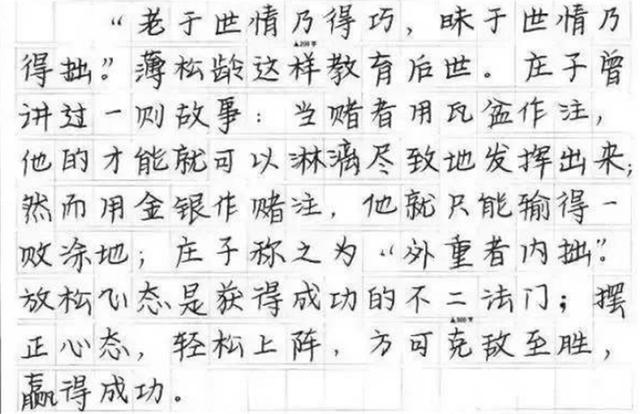 “老于世情乃得巧，昧于世情乃
▲200字
得拙。”薄松龄这样教育后世。庄子曾
讲过一则故事：当赌者用瓦盆作注，
他的才能就可以淋漓尽致地发挥出来；
然而用金银作赌注，他就只能输得一
败涂地；庄子称之为“外重者内拙”。
放松心态是获得成功的不二法门；摆
▲300字
正心态，轻松上阵，方可克敌至胜，
赢得成功。